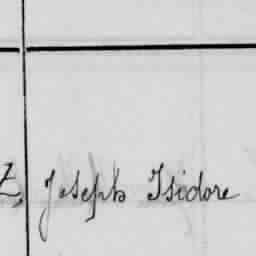 Z, Joseph Isidore